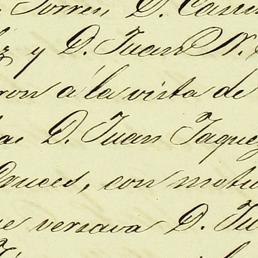 Torres, D. Cam
y D. Juan N.
ron á la vista de
D. Juan Jaque
Cruces, con motu
se versava D. Ju